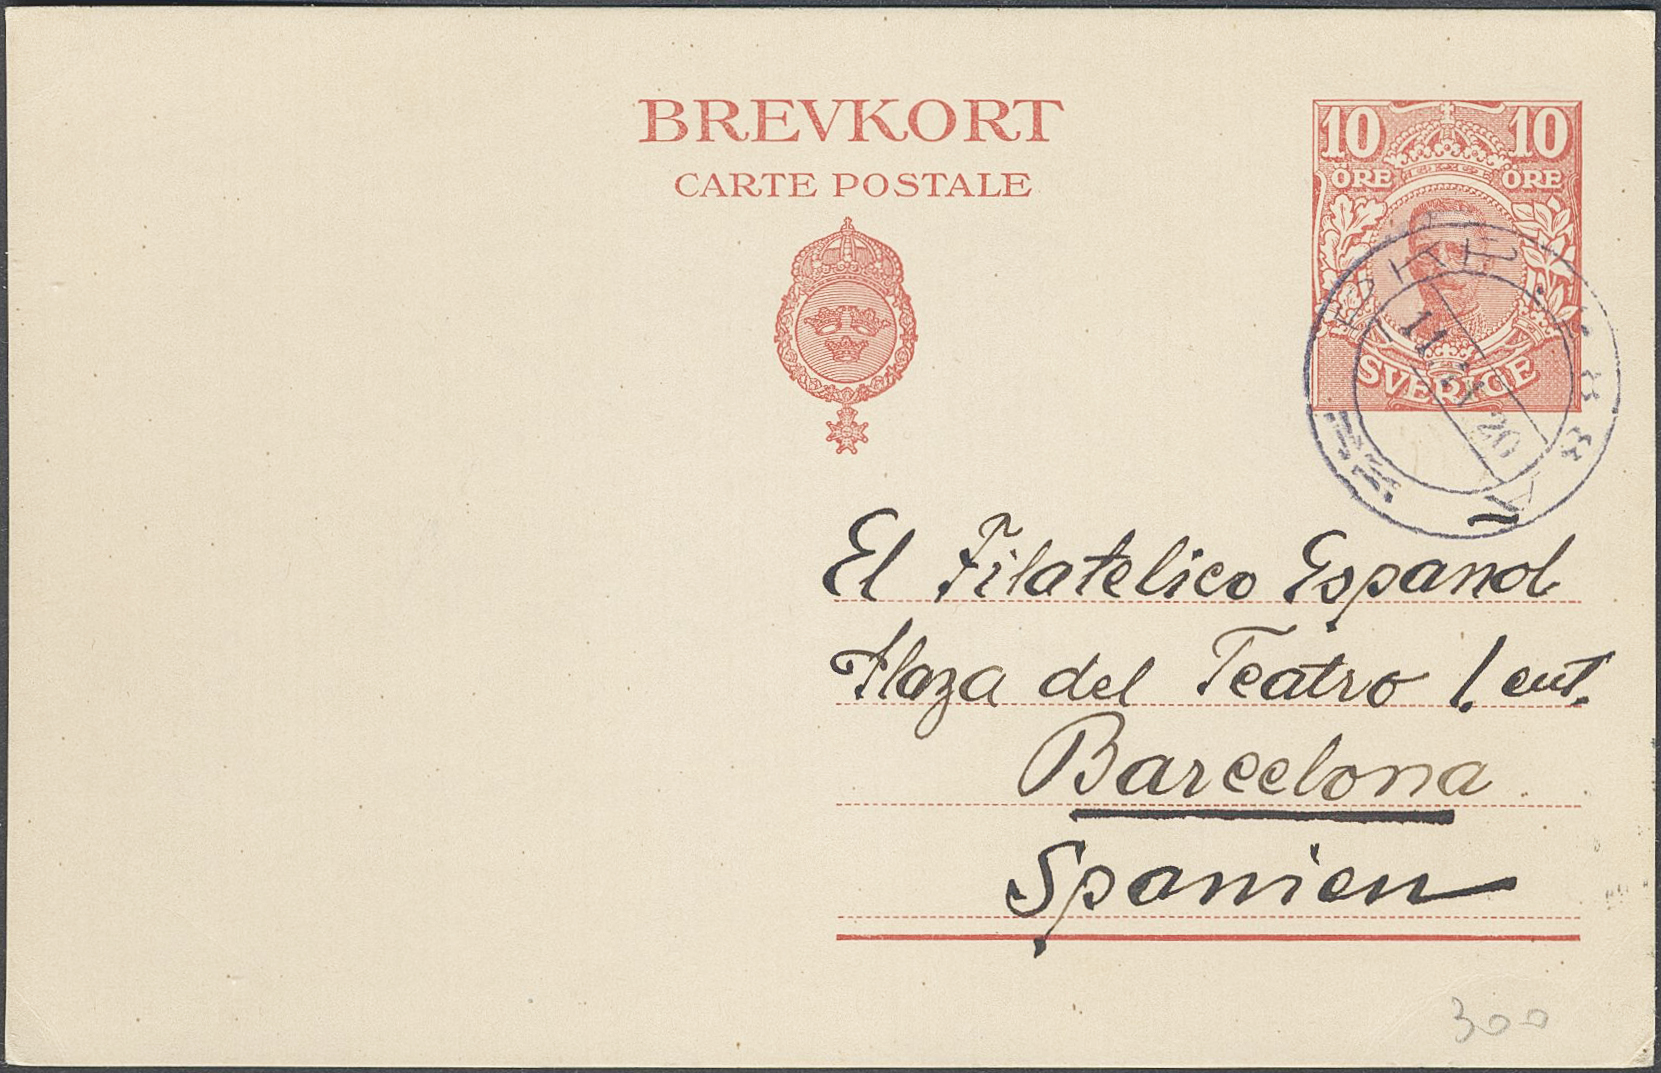 BREVKORT
CARTE POSTALE
10 10
ÖRE ÖRE
SVERIGE
El Filatelico Espanol
Plaza del Teatro 1. ent.
Barcelona
Spanien
300